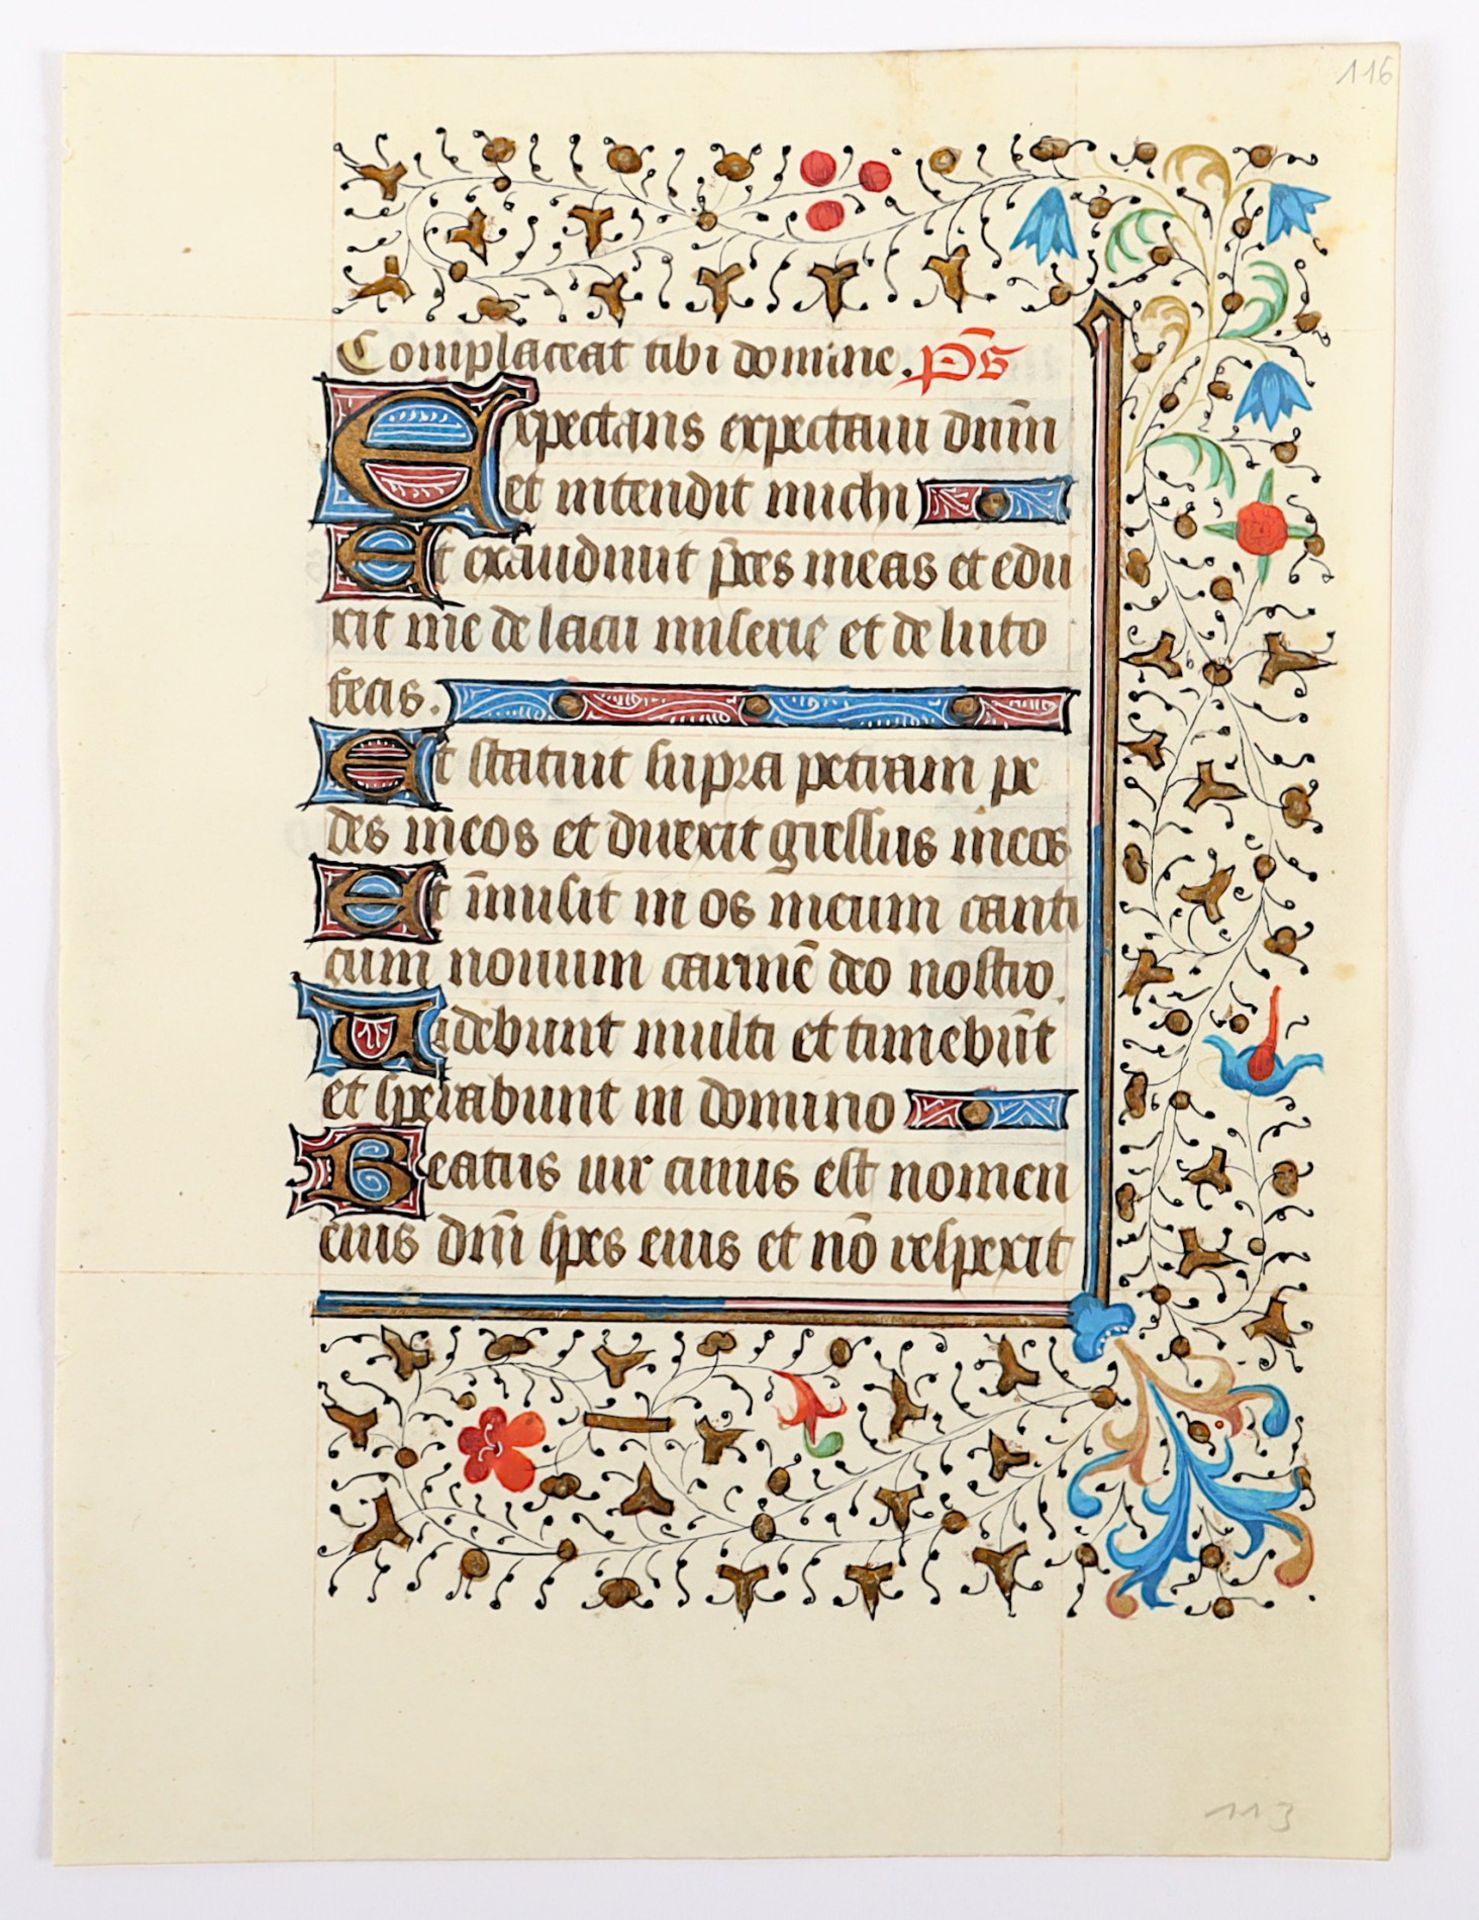 116
Complaceat tibi domine. p̄s
Expectans expectaui dn̄m
et intendit michi
Et exaudiuit p̄ces meas et edu
xit me de lacu miserie et de luto
fecis.
Et statuit supra petram pe
des meos et direxit gressus meos
Et īmisit in os meum canti
cum nouum carmē deo nostro.
Uidebunt multi et timebūt
et sperabunt in domino
Beatus uir cuius est nomen
eius dn̄i spes eius et nō respexit
113